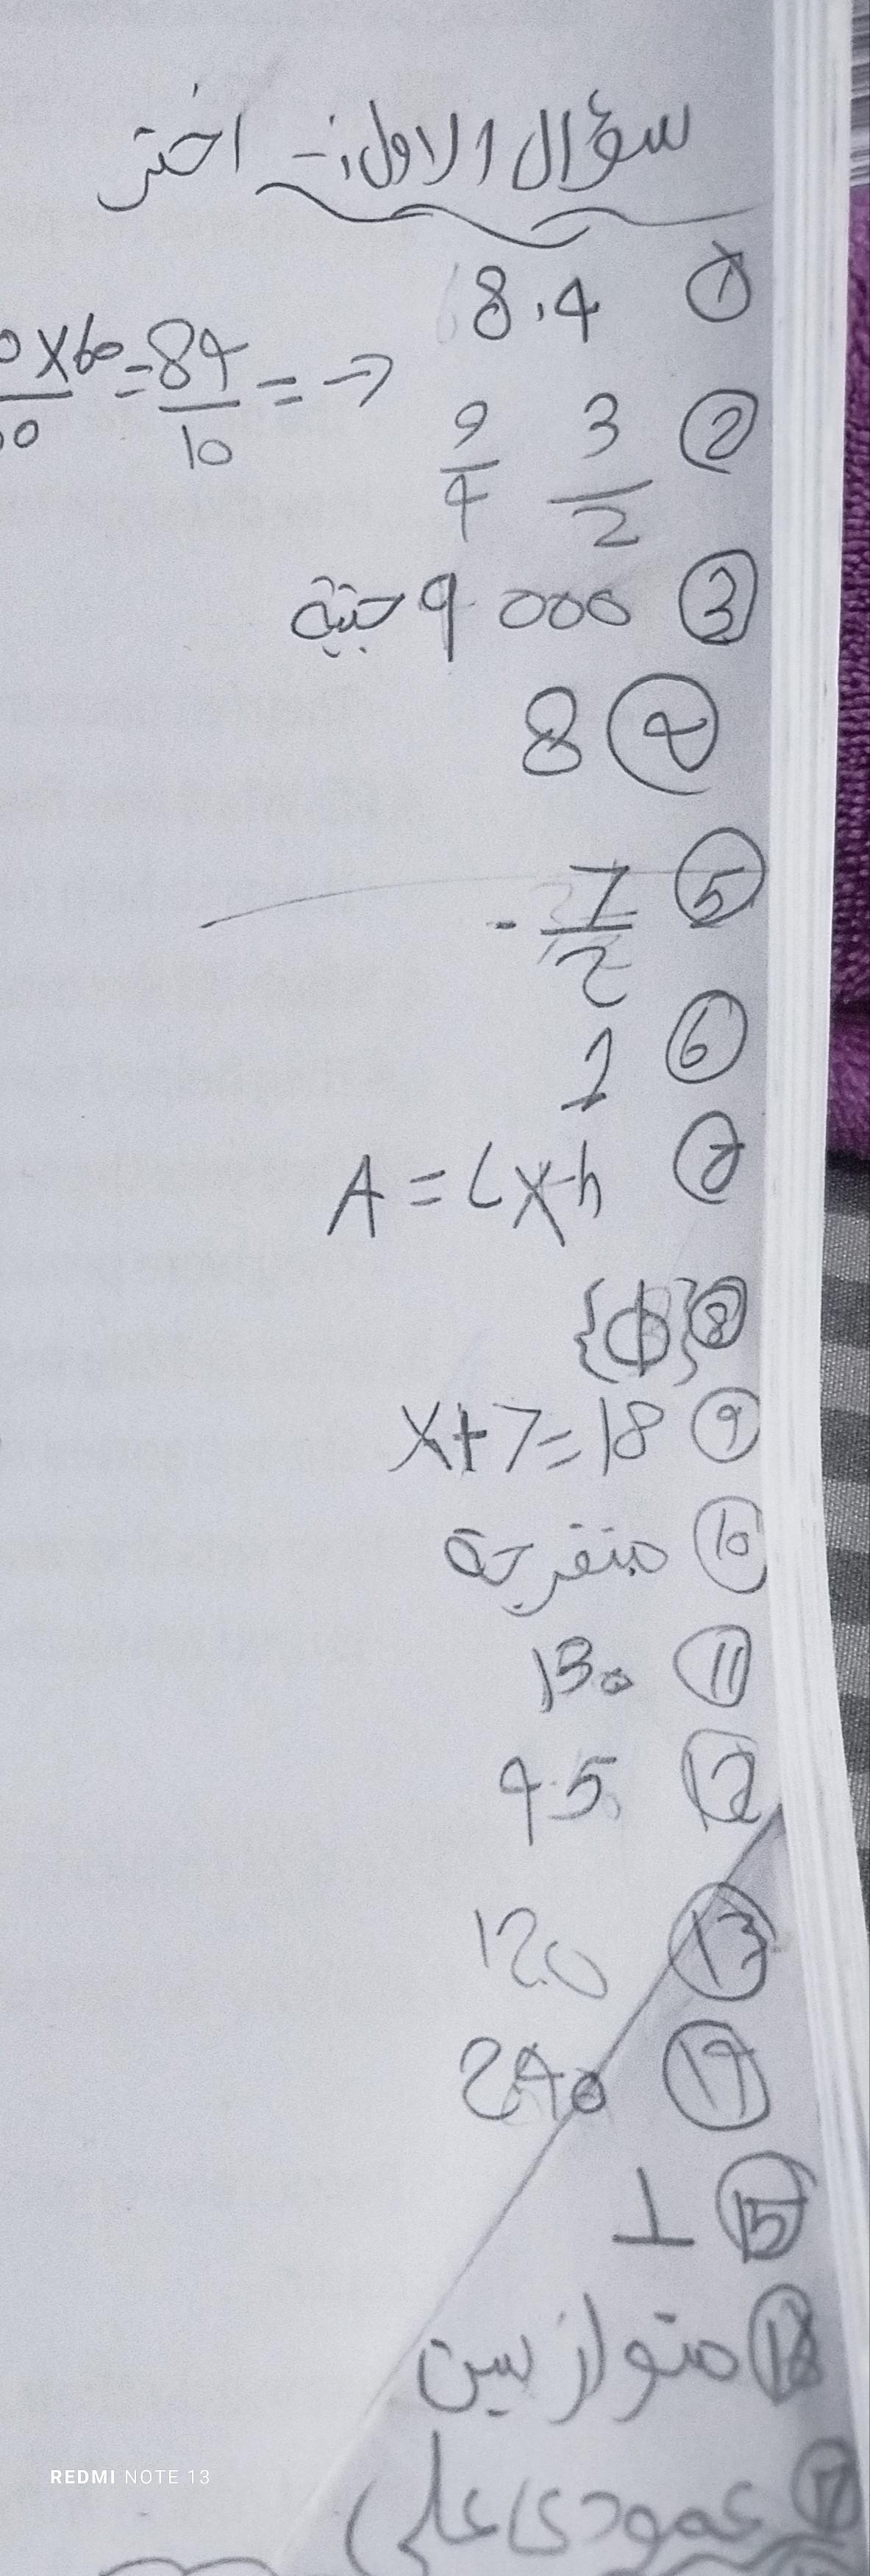 سؤال الاول:- اختر
① 8.4
×60 = 84/10 = →
② 3/2 9/4
③ 9000 جنية
④ 8
⑤ - 7/2
⑥ 1
⑦ A = L×h
⑧ {Φ}
⑨ x+7=18
⑩ منفرجة
⑪ 130
⑫ 45
⑬ 120
⑭ 240
⑮ ⊥
⑯ متوازيين
⑰ عمودى على
REDMI NOTE 13